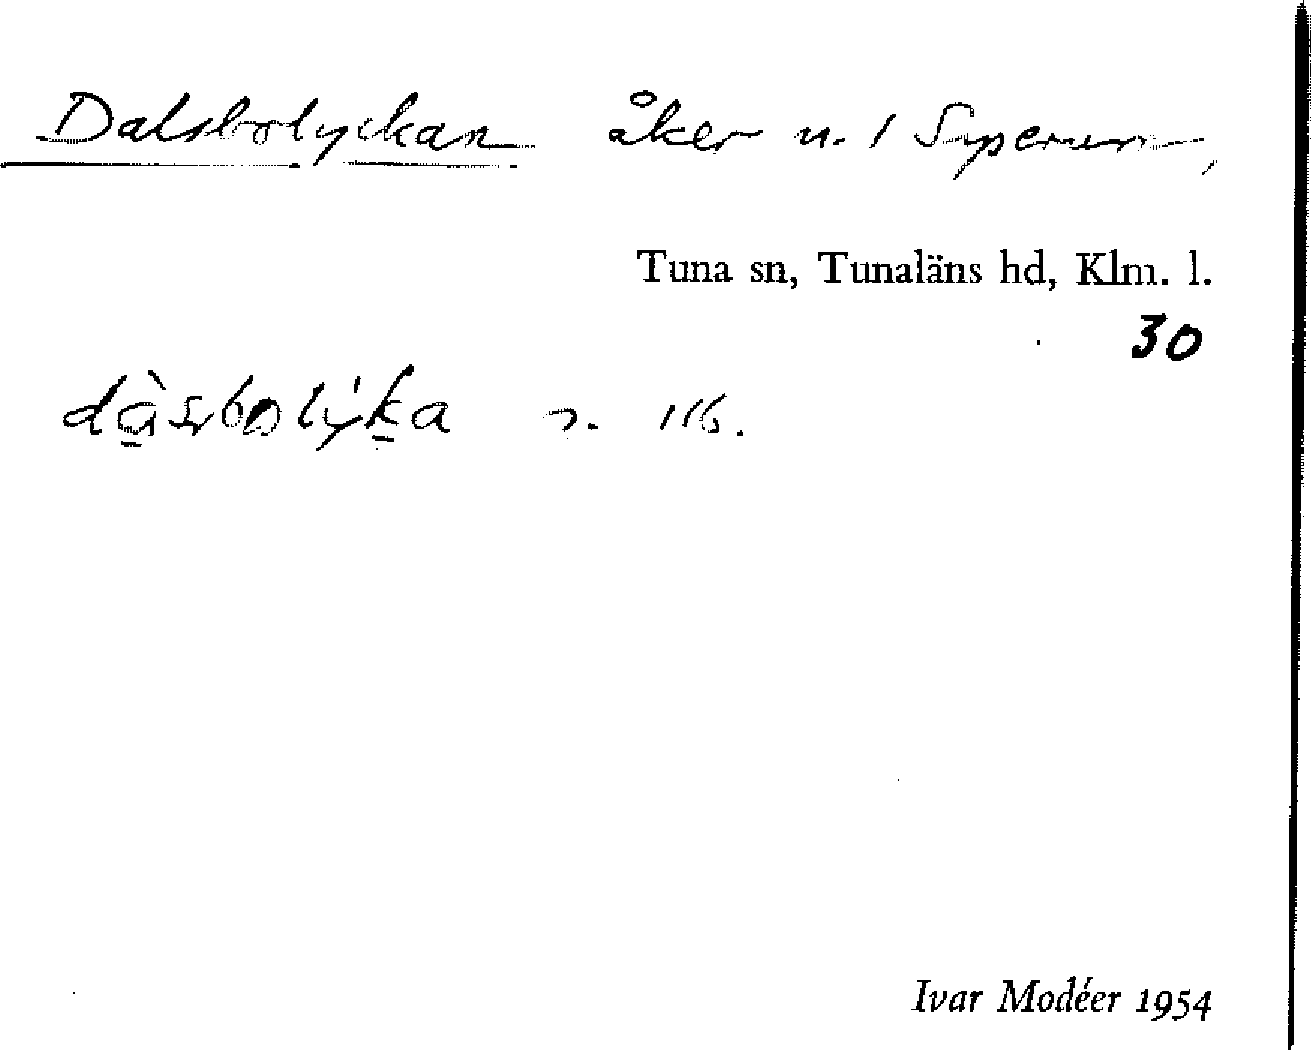 Dalsbolyckan åker n. 1 Syserum,
Tuna sn, Tunaläns hd, Klm. l.
30
Ivar Modéer 1954